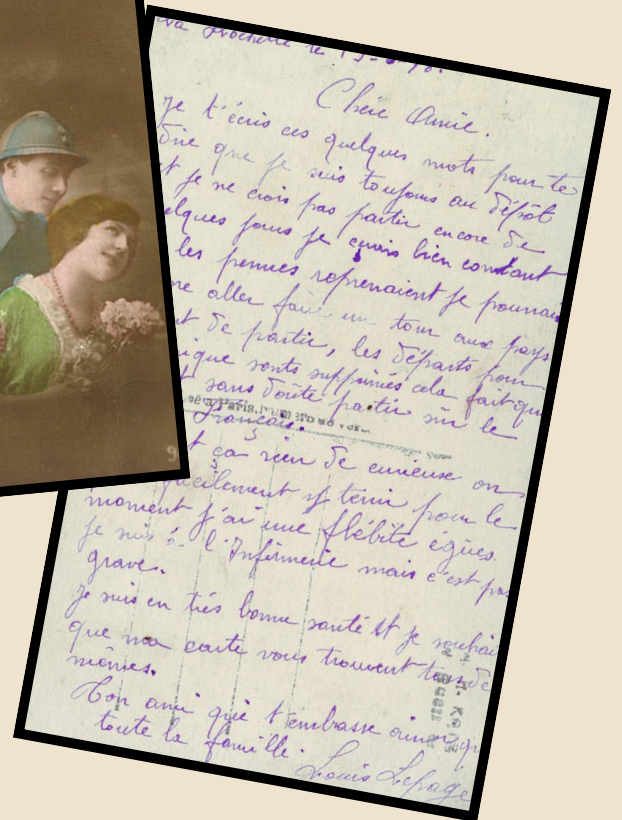 La Rochelle le
Chère Amie.
Je t'écris ces quelques mots pour te
dire que je suis toujours au dépôt
et je ne crois pas partir encore de
elques jours je serais bien contant
les permes reprenaient je pourrai
me aller faire un tour aux pays
nt de partir, les départs pour
ique sonts supprimés cela fait qu
sans doute partir sur le
français.
t ça rien de curieuse on
facilement y tenir pour le
moment j'ai une flébite égues.
je suis à l'Infirmerie mais c'est pas
grave.
Je suis en trés bonne santé et je souhai
que ma carte vous trouvent tous de
mêmes.
Ton ami qui t'embrasse ainsi qu
toute la famille.
Louis Lepage